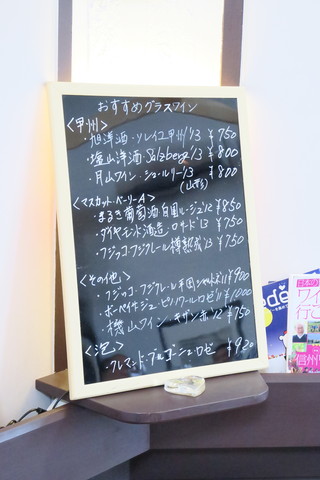 おすすめグラスワイン
<甲州>
・旭洋酒・ソレイユ甲州'13 ¥750
・塩山洋酒 Salzberg '13 ¥800
・月山ワイン・シュールリー'13 ¥800
(山形)
<マスカット・ベーリーA>
・まるき葡萄酒 自園ルージュ'12 ¥850
・ダイヤモンド酒造 ロゼ '13 ¥750
・フジッコ・フジクレール 樽熟成'13 ¥750
<その他>
・フジッコ・フジクレール 千園シャルドネ'11 ¥900
・ボーペイサージュ・ピノワール ロゼ'11 ¥1000
・機山ワイン キザン赤'12 ¥750
<泡>
・クレマンド・ブルゴーニュ・ロゼ ¥920
ede
日本の
ワイ
行こ
信州